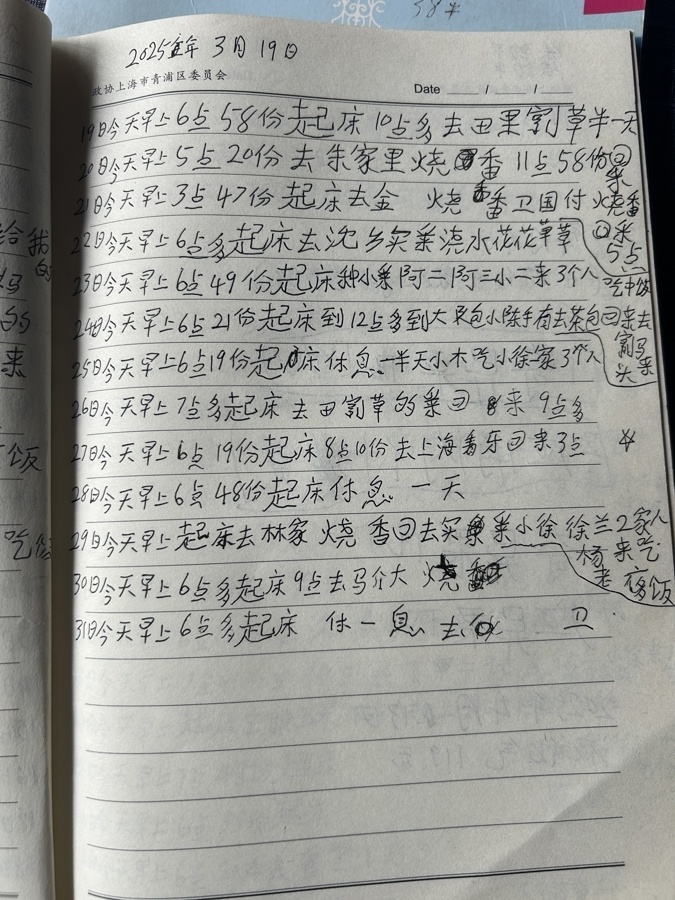 2025年 3月19日
政协上海市青浦区委员会
Date / /
19日今天早上6点58份起床10点多去田里割草半一天
20日今天早上5点20份去朱家里烧香 11点58份回来
21日今天早上3点47份起床去金 烧香卫国付烧香回来5点
22日今天早上6点多起床去沈乡买菜浇水花花草草
23日今天早上6点49份起床种小菜阿二阿三小二来3个人吃中饭
24日今天早上6点21份起床到12点多到大 包小陈手有去茶包回来去割马来头
25日今天早上6点19份起床休息一半天小木吃小徐家3个人
26日今天早上7点多起床 去田割草的菜回来9点多
27日今天早上6点19份起床8点10份去上海看牙回来3点
28日今天早上6点48份起床休息 一天
29日今天早上起床去林家 烧香回去买菜小徐徐兰2家人杨老来吃夜饭
30日今天早上6点多起床9点去马个大 烧香
31日今天早上6点多起床 休一息 去 卫